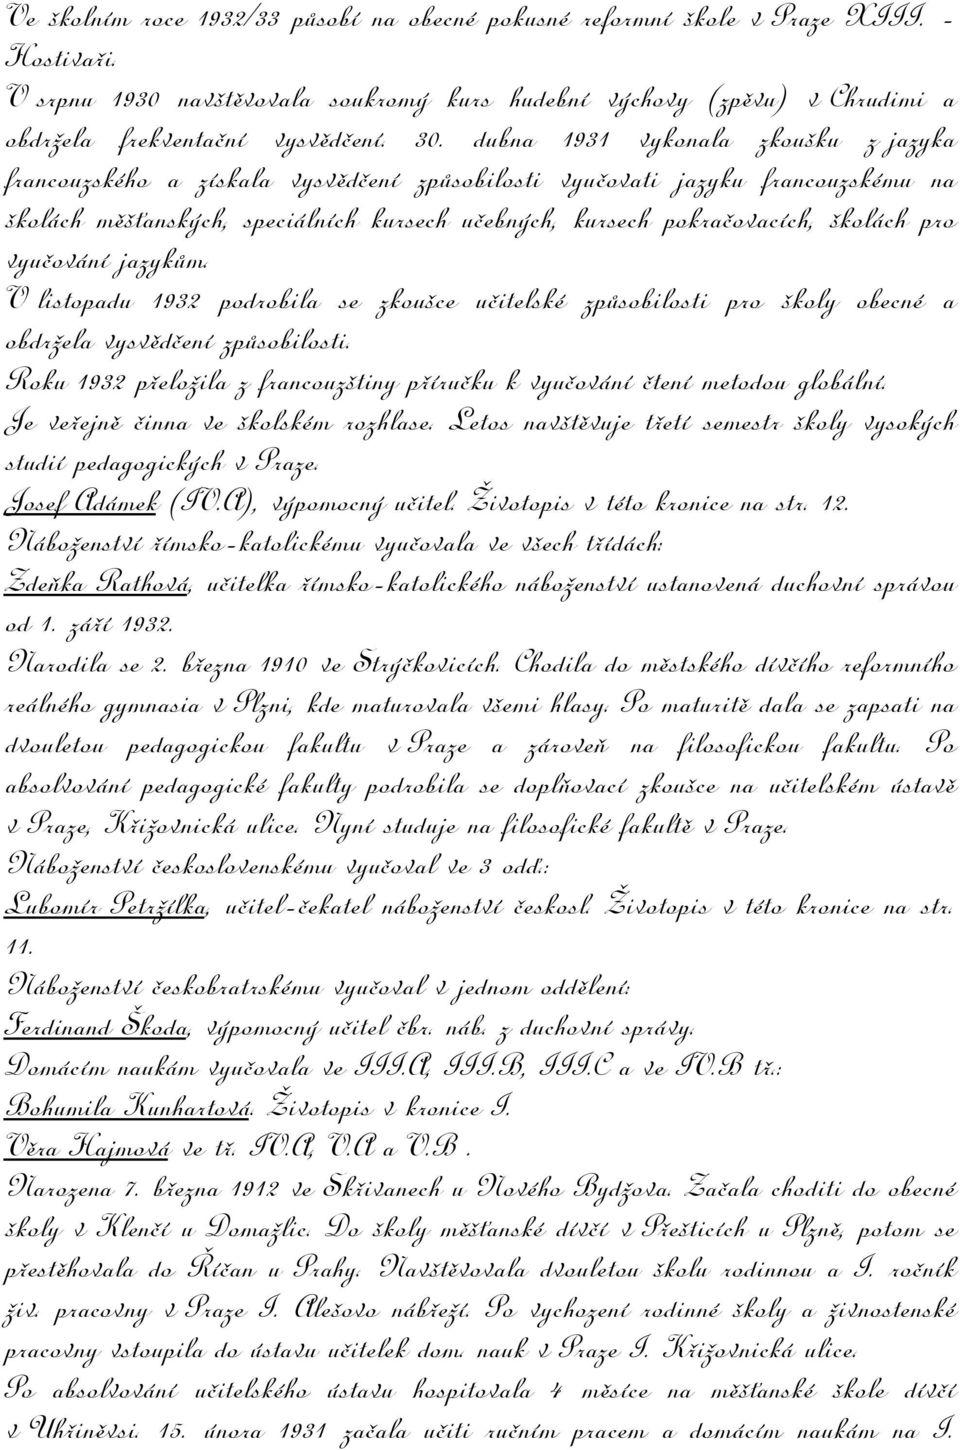 Ve školním roce 1932/33 působí na obecné pokusné reformní škole v Praze XIII. -
Hostivaři.
V srpnu 1930 navštěvovala soukromý kurs hudební výchovy (zpěvu) v Chrudimi a
obdržela frekventační vysvědčení. 30. dubna 1931 vykonala zkoušku z jazyka
francouzského a získala vysvědčení způsobilosti vyučovati jazyku francouzskému na
školách měšťanských, speciálních kursech učebných, kursech pokračovacích, školách pro
vyučování jazykům.
V listopadu 1932 podrobila se zkoušce učitelské způsobilosti pro školy obecné a
obdržela vysvědčení způsobilosti.
Roku 1932 přeložila z francouzštiny příručku k vyučování čtení metodou globální.
Je veřejně činna ve školském rozhlase. Letos navštěvuje třetí semestr školy vysokých
studií pedagogických v Praze.
Josef Adámek (IV.A), výpomocný učitel. Životopis v této kronice na str. 12.
Náboženství římsko-katolickému vyučovala ve všech třídách:
Zdeňka Rathová, učitelka římsko-katolického náboženství ustanovená duchovní správou
od 1. září 1932.
Narodila se 2. března 1910 ve Strýčkovicích. Chodila do městského dívčího reformního
reálného gymnasia v Plzni, kde maturovala všemi hlasy. Po maturitě dala se zapsati na
dvouletou pedagogickou fakultu v Praze a zároveň na filosofickou fakultu. Po
absolvování pedagogické fakulty podrobila se doplňovací zkoušce na učitelském ústavě
v Praze, Křižovnická ulice. Nyní studuje na filosofické fakultě v Praze.
Náboženství československému vyučoval ve 3 odď.:
Lubomír Petržílka, učitel-čekatel náboženství českosl. Životopis v této kronice na str.
11.
Náboženství českobratrskému vyučoval v jednom oddělení:
Ferdinand Škoda, výpomocný učitel čbr. náb. z duchovní správy.
Domácím naukám vyučovala ve III.A, III.B, III.C a ve IV.B tř.:
Bohumila Kunhartová. Životopis v kronice I.
Věra Hajmová ve tř. IV.A, V.A a V.B .
Narozena 7. března 1912 ve Skřivanech u Nového Bydžova. Začala choditi do obecné
školy v Klenčí u Domažlic. Do školy měšťanské dívčí v Přešticích u Plzně, potom se
přestěhovala do Říčan u Prahy. Navštěvovala dvouletou školu rodinnou a I. ročník
živ. pracovny v Praze I. Alešovo nábřeží. Po vychození rodinné školy a živnostenské
pracovny vstoupila do ústavu učitelek dom. nauk v Praze I. Křižovnická ulice.
Po absolvování učitelského ústavu hospitovala 4 měsíce na měšťanské škole dívčí
v Uhřiněvsi. 15. února 1931 začala učiti ručním pracem a domácím naukám na I.